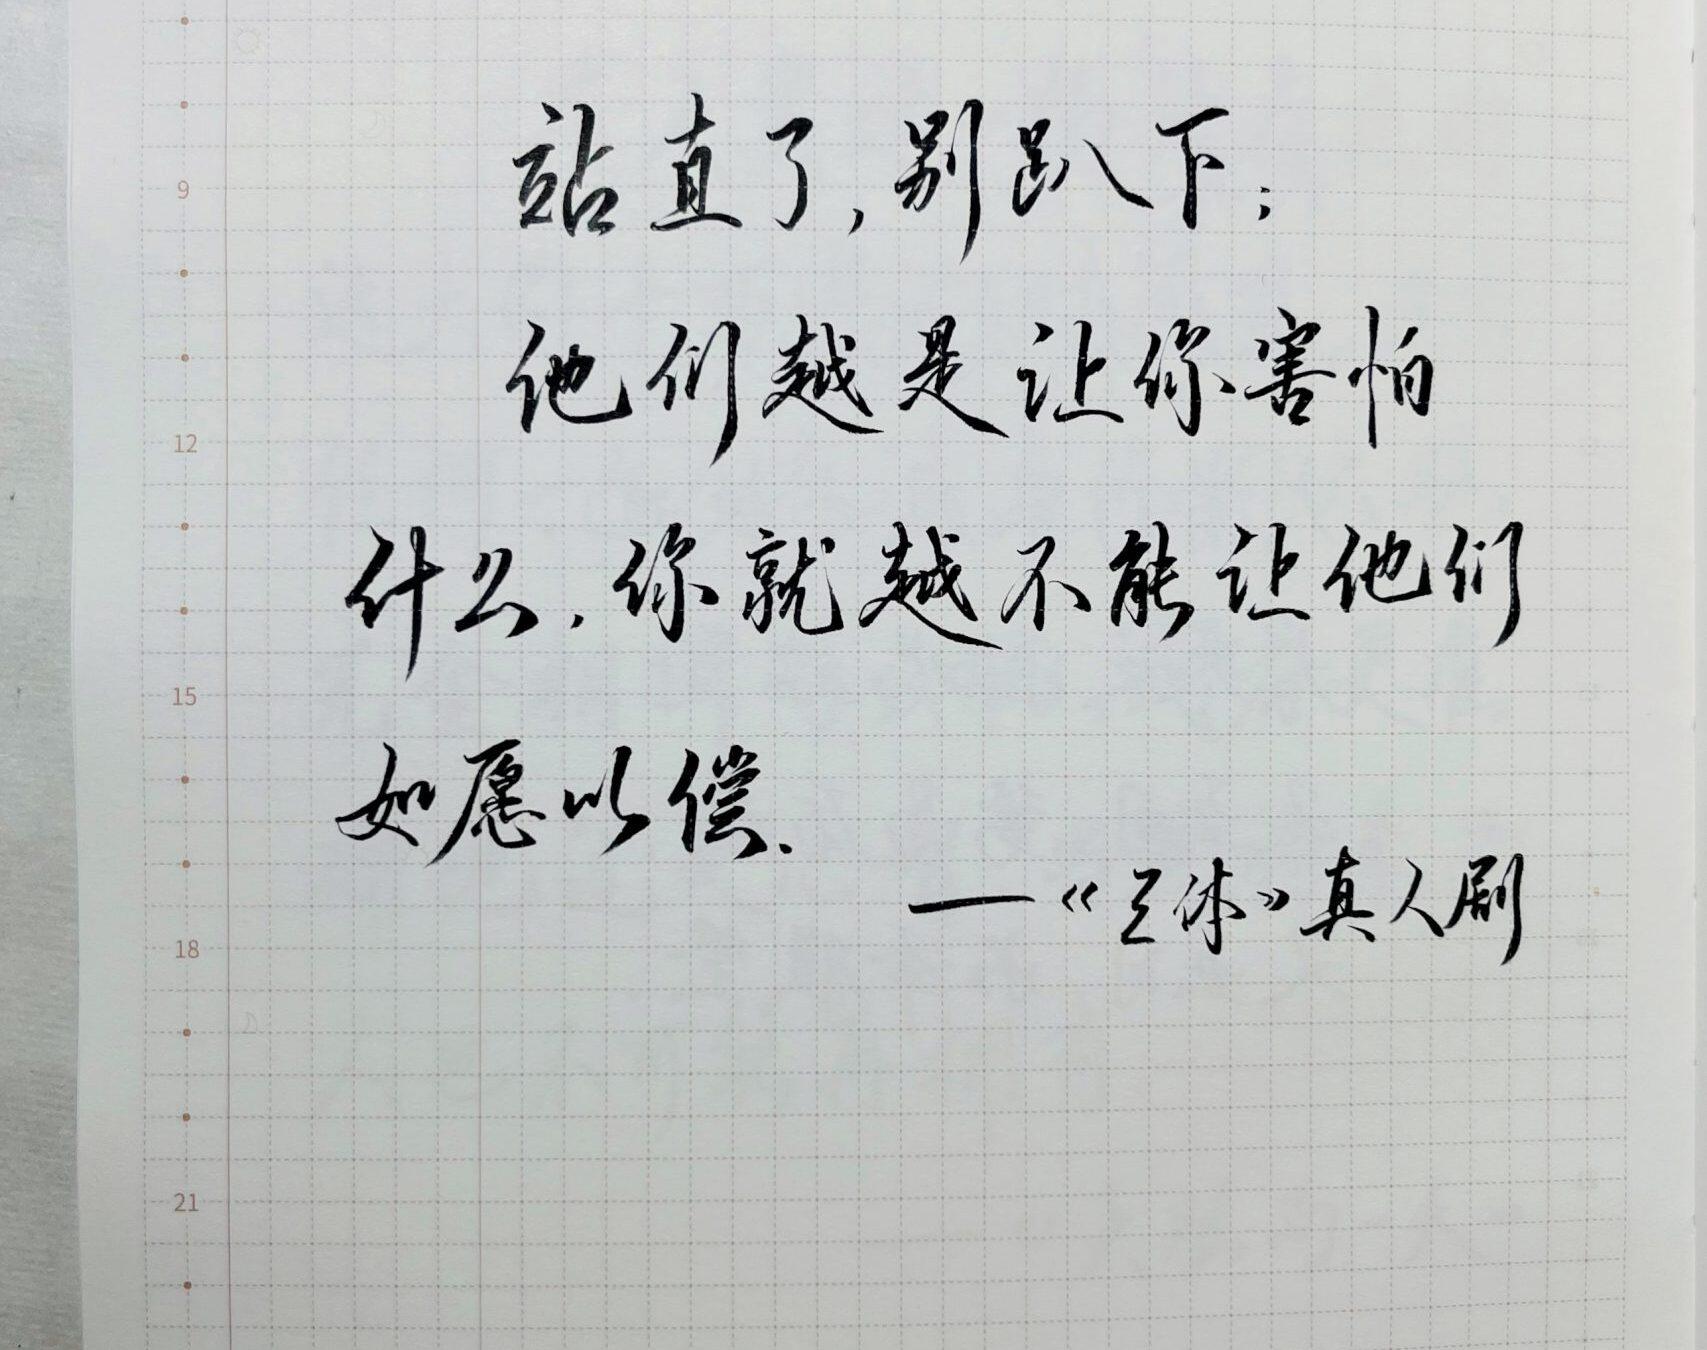 站直了,别趴下;
他们越是让你害怕
什么,你就越不能让他们
如愿以偿.
—《三体》真人剧
9
12
15
18
21